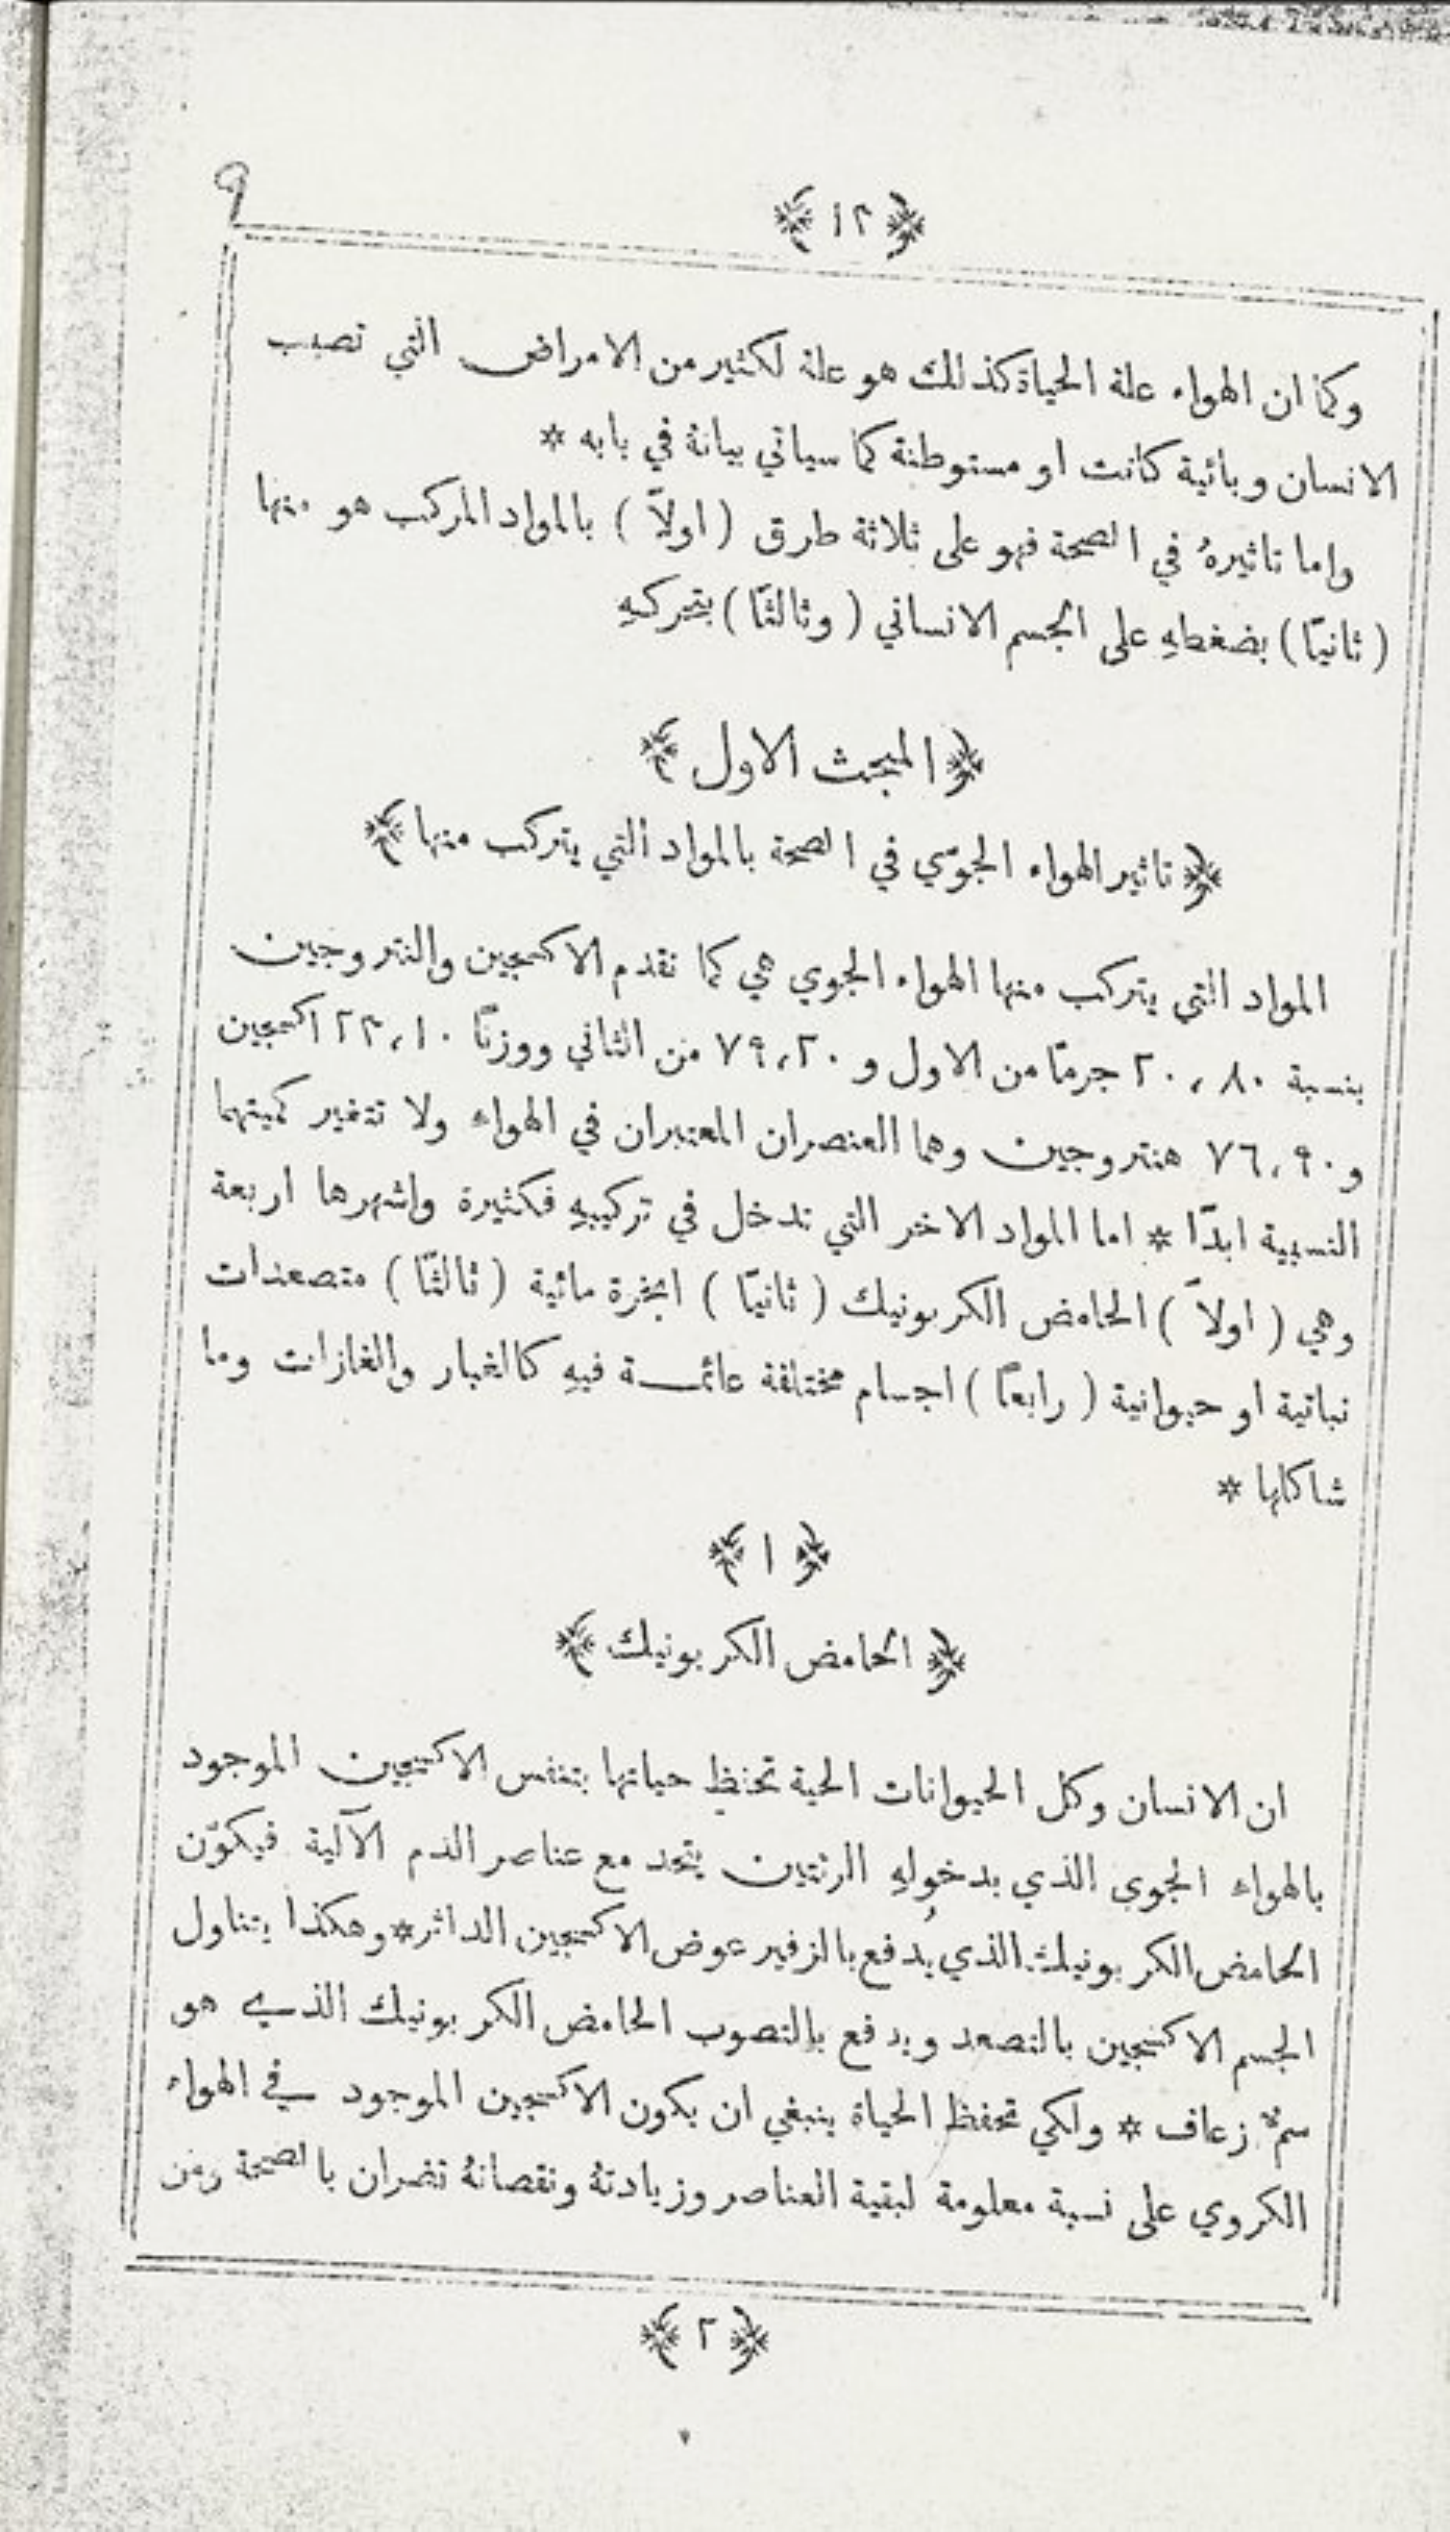 ٩
﴿ ١٢ ﴾
وكما ان الهواء علة الحياة كذلك هو علة لكثير من الامراض التي تصيب
الانسان وبائية كانت او مستوطنة كما سياتي بيانهُ في بابه *
واما تاثيرهُ في الصحة فهو على ثلاثة طرق ( اولاً ) بالمواد المركب هو منها
( ثانيًا ) بضغطهِ على الجسم الانساني ( وثالثًا ) بتحركهِ
﴿ المبحث الاول ﴾
﴿ تاثير الهواء الجوّي في الصحة بالمواد التي يتركب منها ﴾
المواد التي يتركب منها الهواء الجوي هي كما تقدم الاكسجين والنتروجين
بنسبة ٢٠،٨٠ جرمًا من الاول و ٧٩،٢٠ من الثاني ووزنًا ٢٣،١٠ اكسجين
و٧٦،٩٠ هنتروجين وهما العنصران المعتبران في الهواء ولا تتغير كميتهما
النسبية ابدًا * اما المواد الاخر التي تدخل في تركيبهِ فكثيرة واشهرها اربعة
وهي ( اولاً ) الحامض الكربونيك ( ثانيًا ) ابخرة مائية ( ثالثًا ) متصعدات
نباتية او حيوانية ( رابعًا ) اجسام مختلفة عائمـة فيهِ كالغبار والغازات وما
شاكلها *
﴿ ١ ﴾
﴿ الحامض الكربونيك ﴾
ان الانسان وكل الحيوانات الحية تحفظ حياتها بتنفس الاكسجين الموجود
بالهواء الجوي الذي بدخولهِ الرئتين يتحد مع عناصر الدم الآلية فيكوّن
الحامض الكربونيك الذي يُدفع بالزفير عوض الاكسجين الداثر * وهكذا يتناول
الجسم الاكسجين بالتصعد ويدفع بالتصوب الحامض الكربونيك الذي هو
سمٌّ زعاف * ولكي تحفظ الحياة ينبغي ان يكون الاكسجين الموجود في الهواء
الكروي على نسبة معلومة لبقية العناصر وزيادتهُ ونقصانهُ تضران بالصحة ومن
﴿ ٢ ﴾